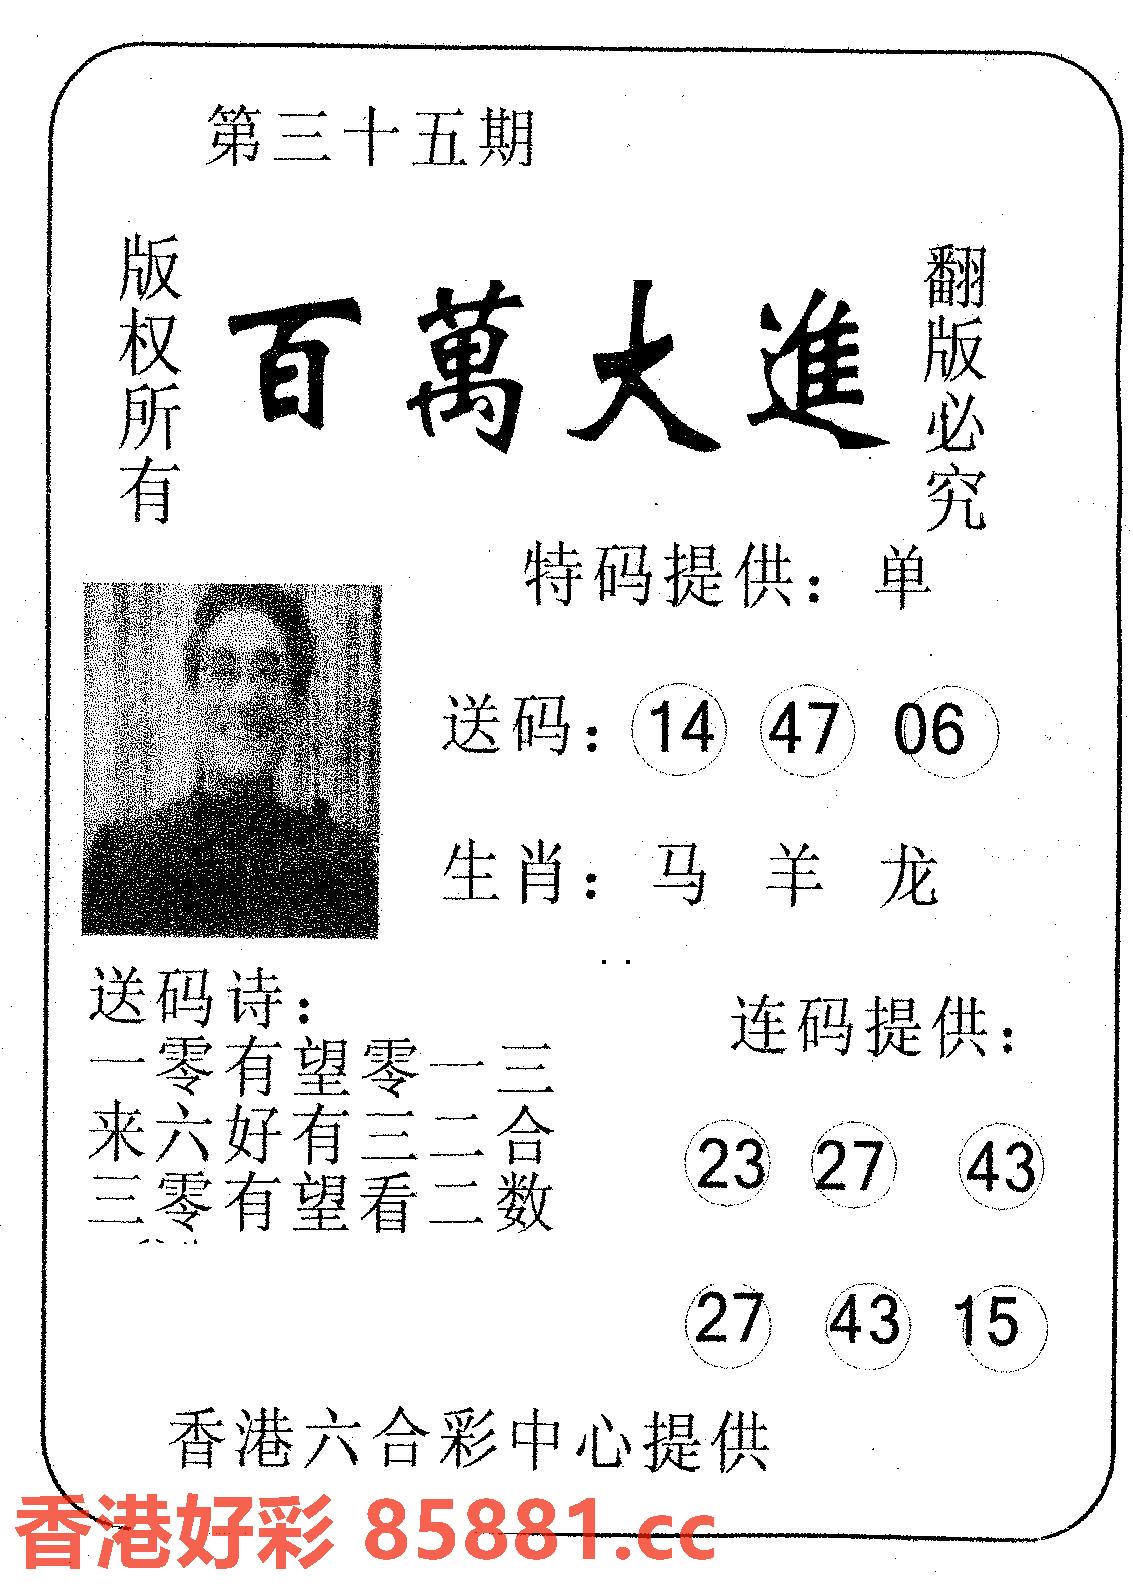 第三十五期
版权所有
百萬大進
翻版必究
特码提供：单
送码：14 47 06
生肖：马 羊 龙
送码诗：
一零有望零一三
来六好有三二合
三零有望看二数
连码提供：
23 27 43
27 43 15
香港六合彩中心提供
香港好彩 85881.cc